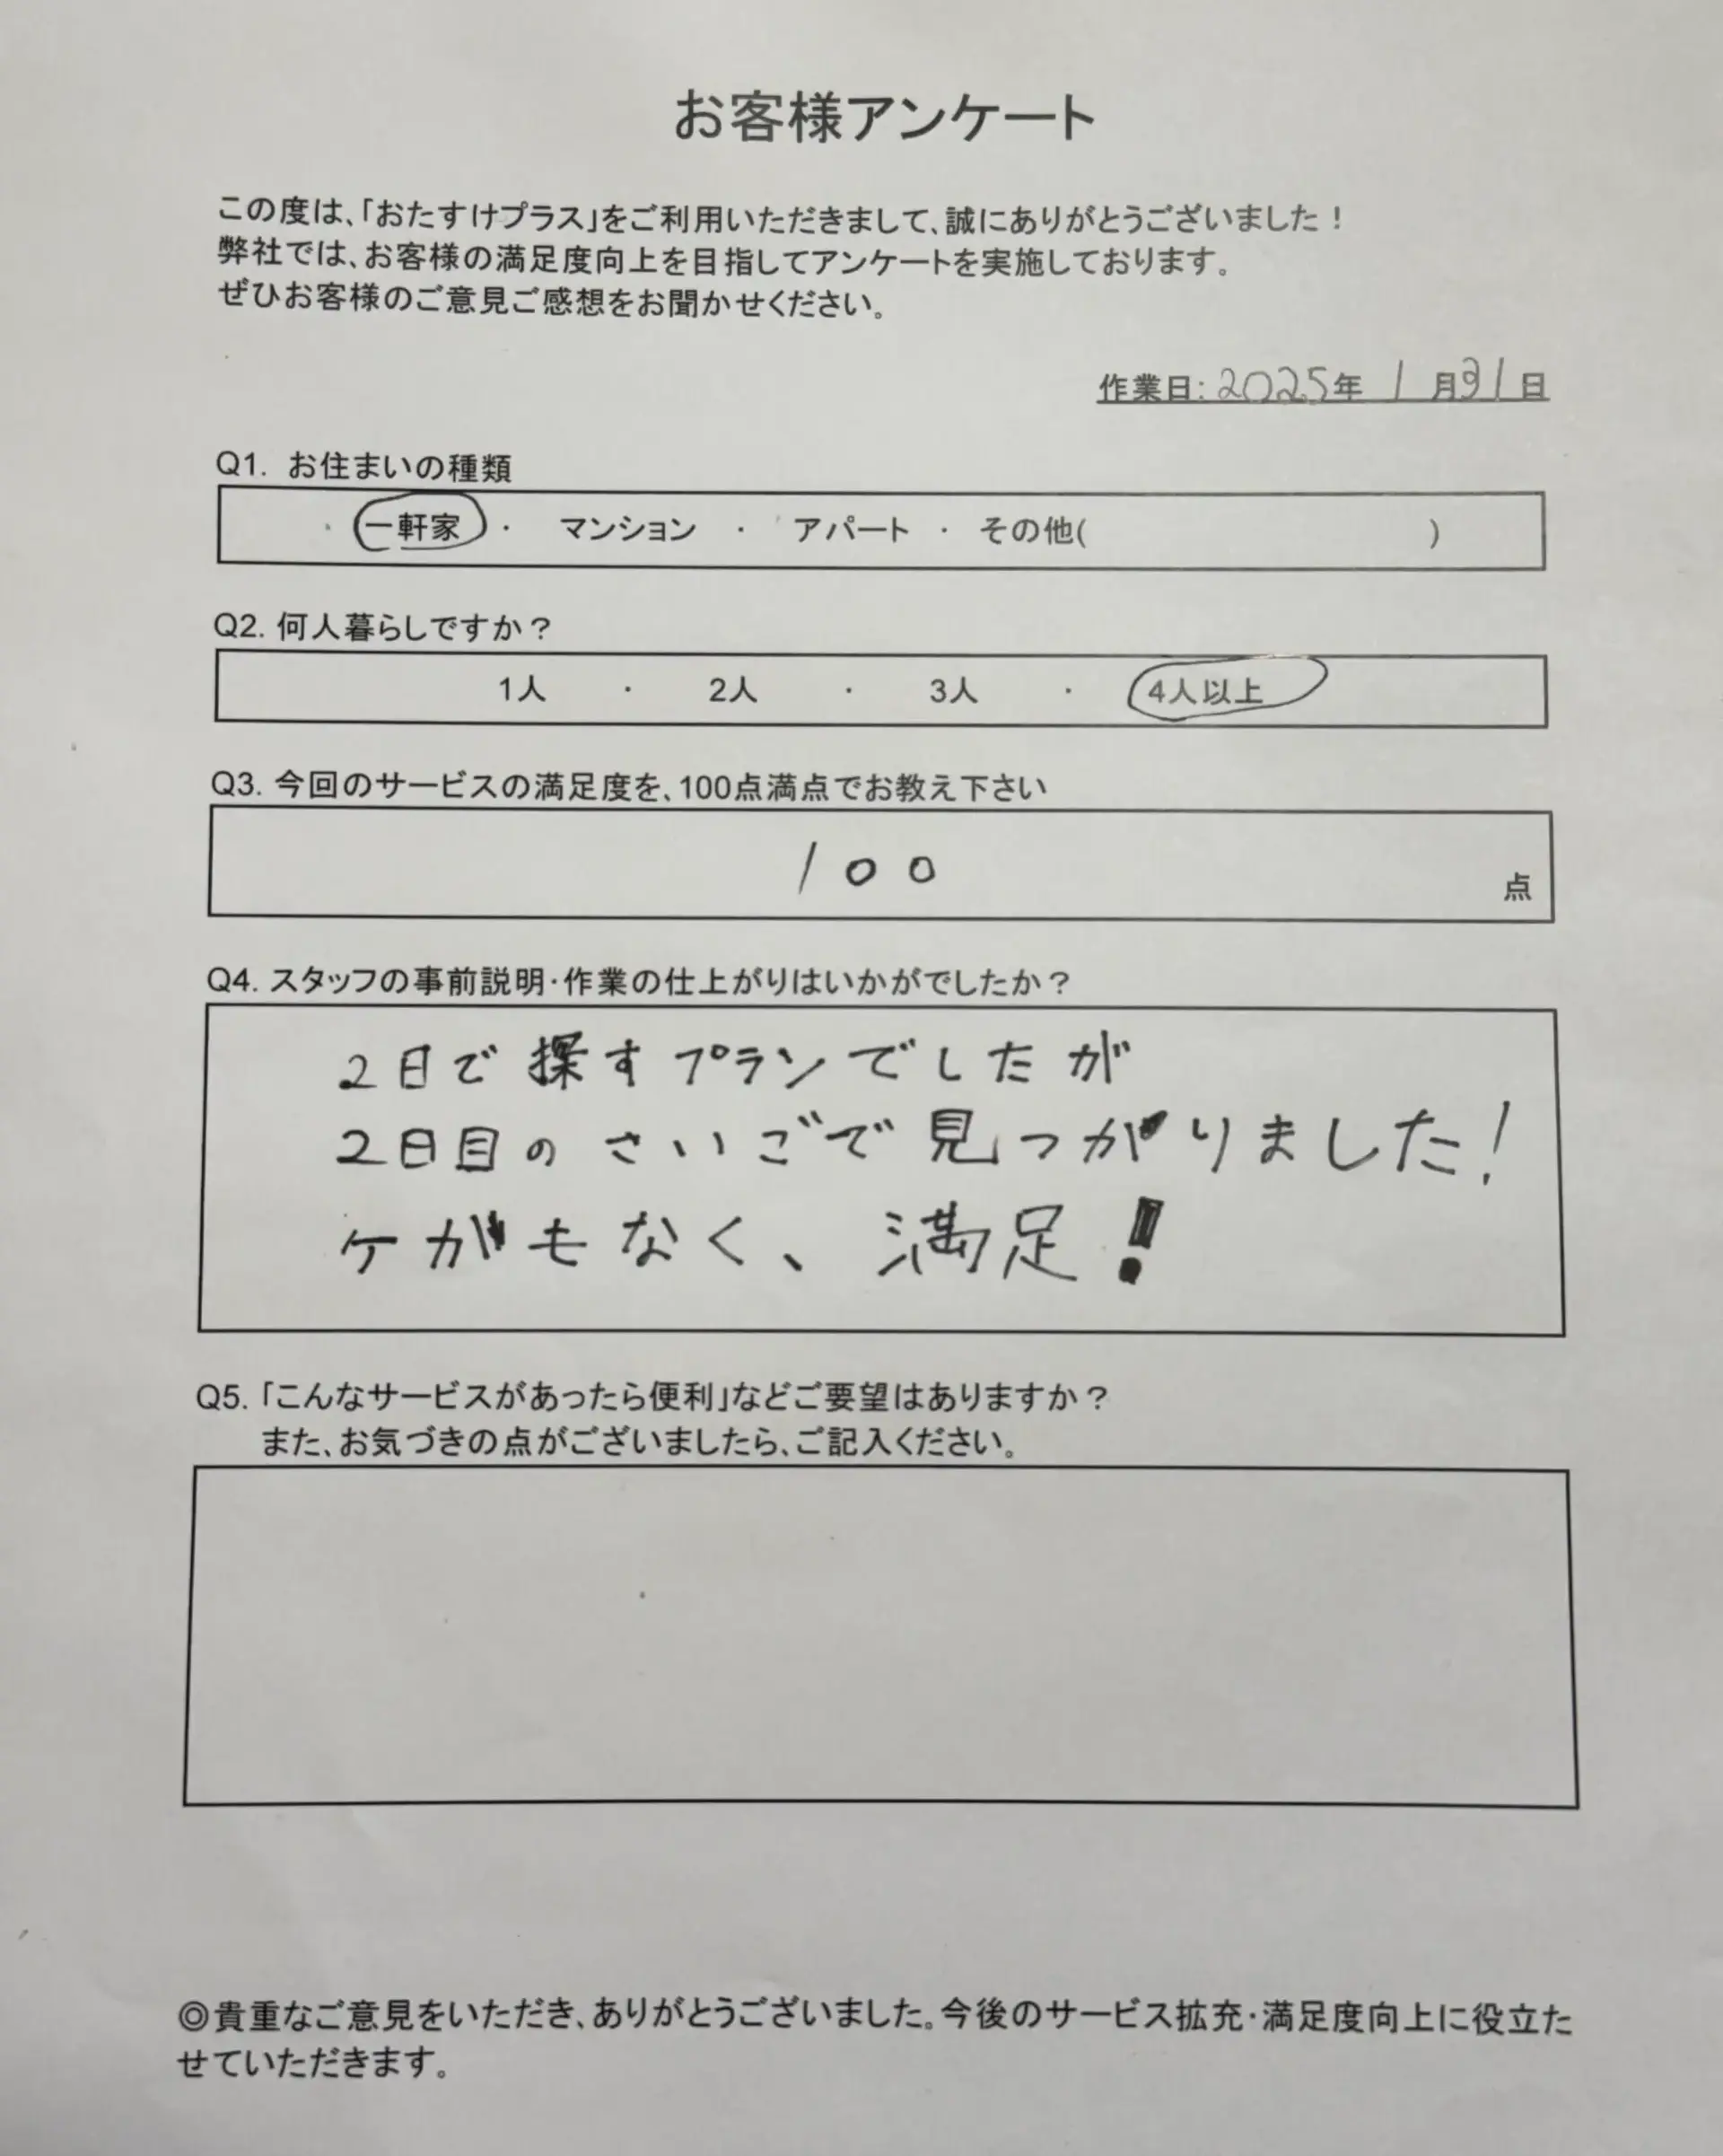 お客様アンケート
この度は、「おたすけプラス」をご利用いただきまして、誠にありがとうございました！
弊社では、お客様の満足度向上を目指してアンケートを実施しております。
ぜひお客様のご意見ご感想をお聞かせください。
作業日：2025年 1月31日
Q1. お住まいの種類
一軒家 ・ マンション ・ アパート ・ その他( )
Q2. 何人暮らしですか？
1人 ・ 2人 ・ 3人 ・ 4人以上
Q3. 今回のサービスの満足度を、100点満点でお教え下さい
100 点
Q4. スタッフの事前説明・作業の仕上がりはいかがでしたか？
2日で探すプランでしたが
2日目のさいごで見つかりました！
ケガもなく、満足！
Q5. 「こんなサービスがあったら便利」などご要望はありますか？
また、お気づきの点がございましたら、ご記入ください。
◎貴重なご意見をいただき、ありがとうございました。今後のサービス拡充・満足度向上に役立た
せていただきます。